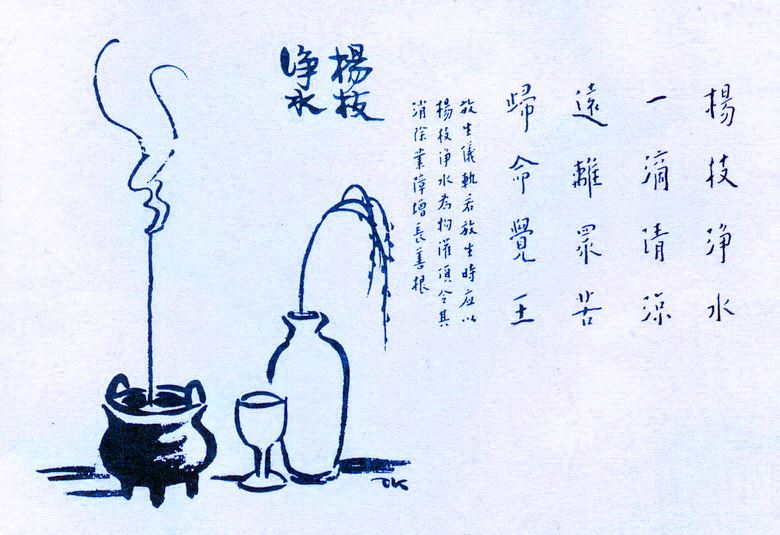 楊枝淨水
一滴清涼
遠離眾苦
歸命覺王
放生儀軌若放生時應以
楊枝淨水為物灌頂令其
消除業障增長善根
楊枝
淨水
TK